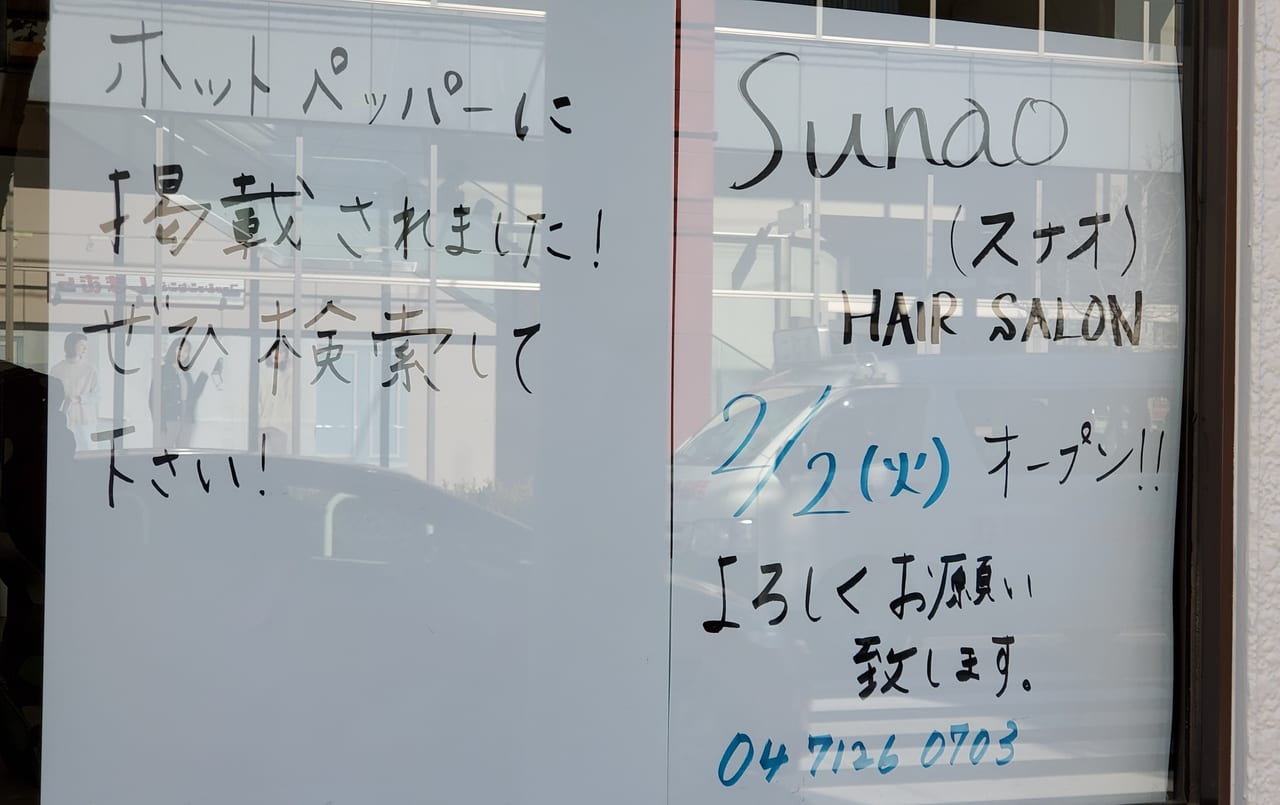 ホットペッパーに
掲載されました！
ぜひ検索して
下さい！
Sunao
(スナオ)
HAIR SALON
2/2(火) オープン!!
よろしくお願い
致します。
04 7126 0703